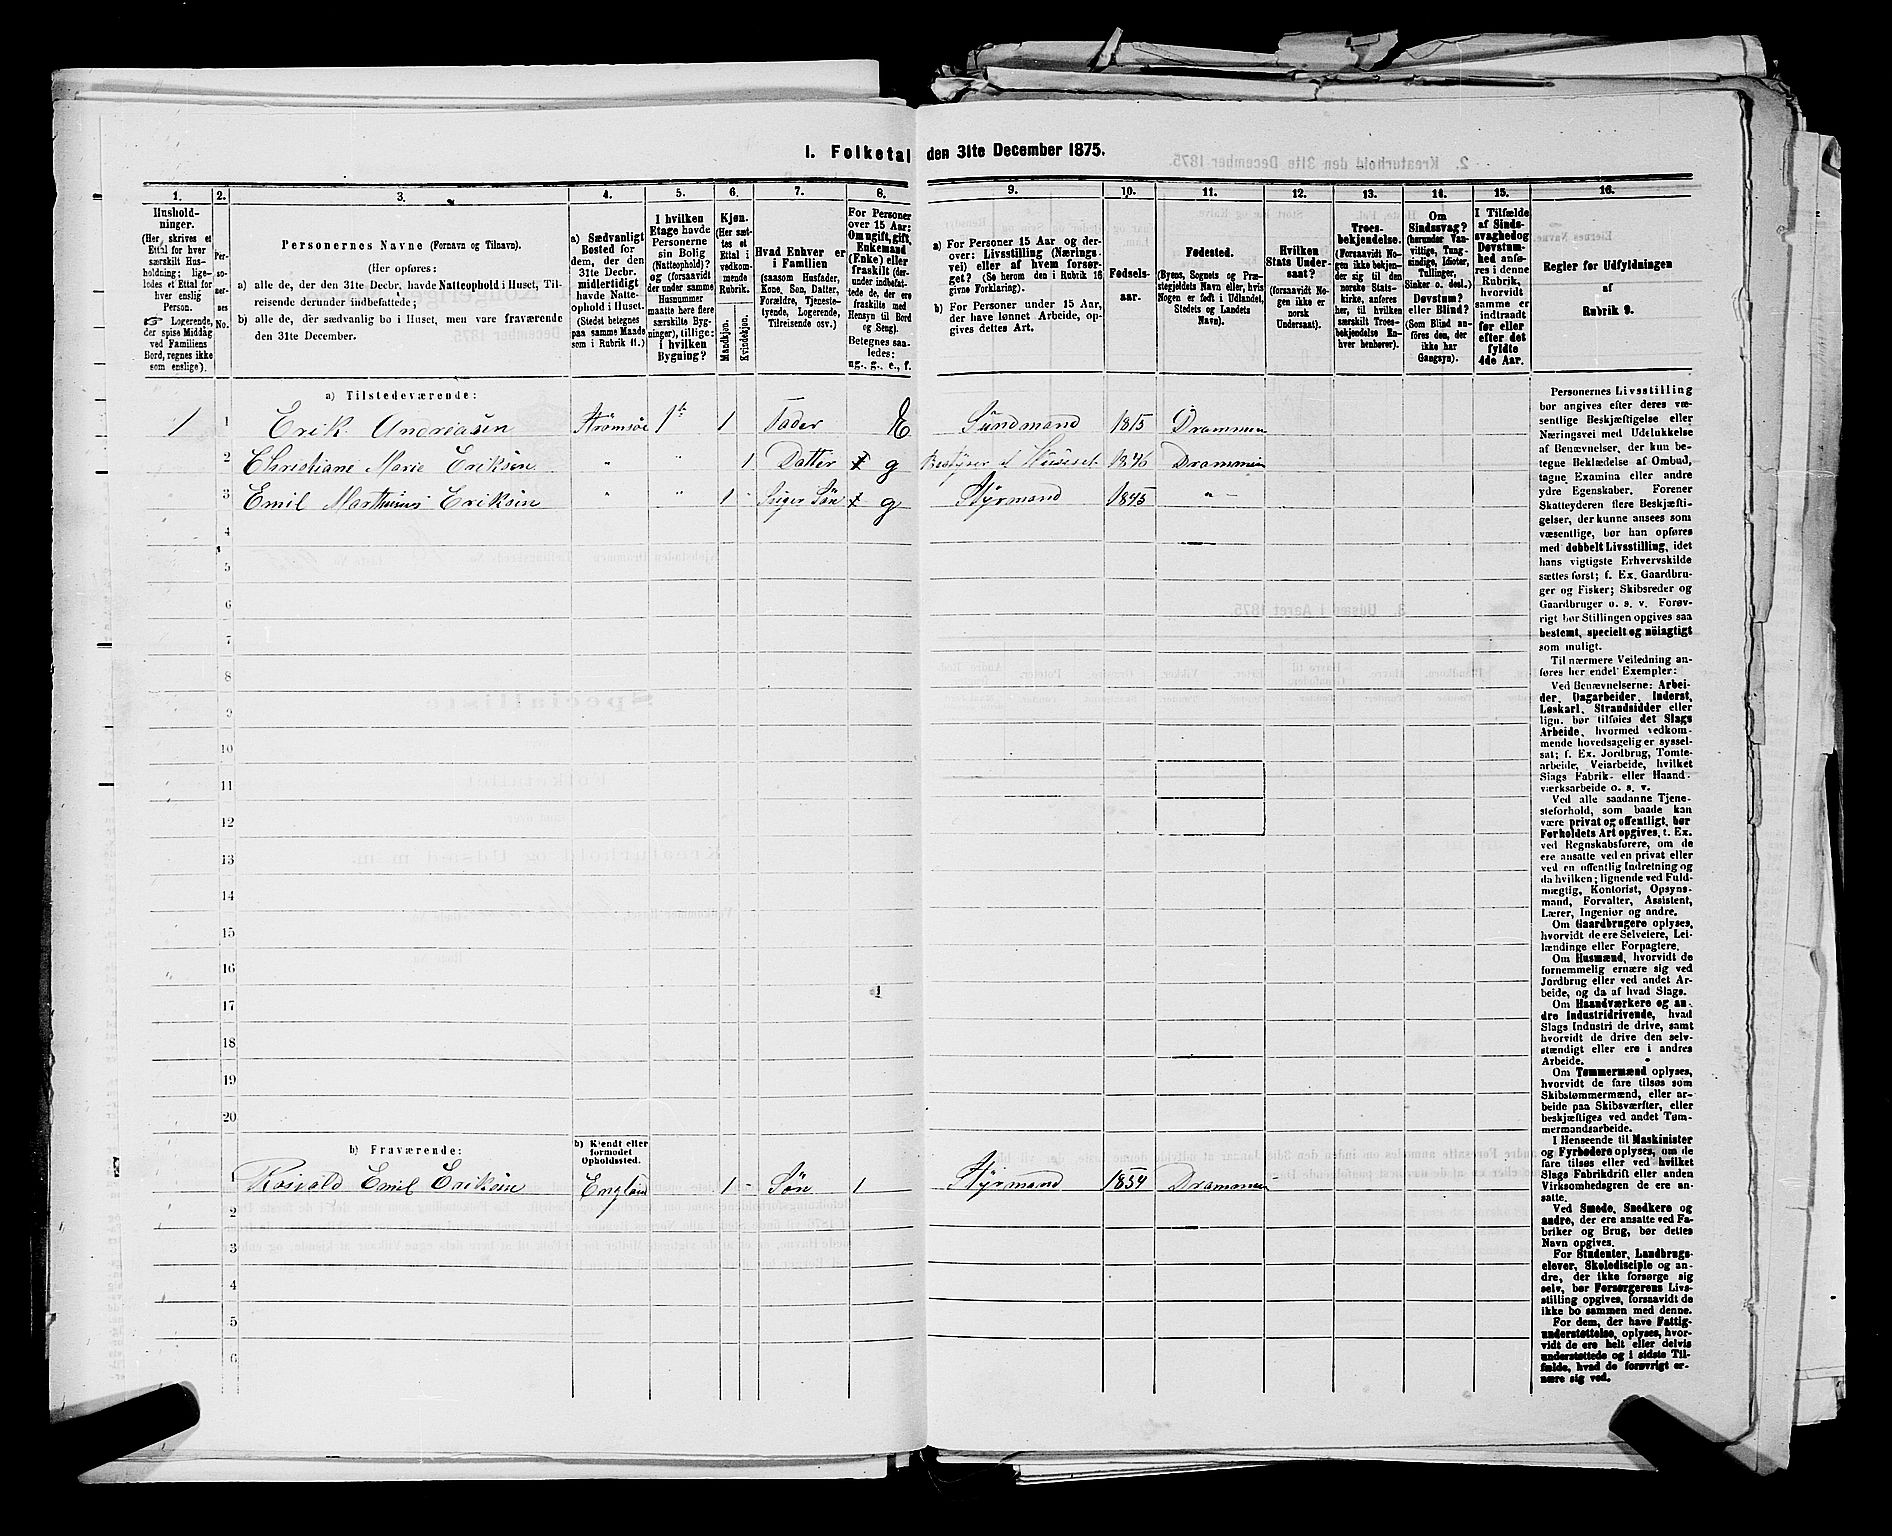 I. Folketal den 31te December 1875.
1. 2. 3. 4. 5. 6. 7. 8. 9. 10. 11. 12. 13. 14. 15. 16.
Husholdninger.
(Her skrives et
Ettal for hver
særskilt Husholdning;
ligeledes et Ettal for
hver enslig
Person.
☞ Logerende,
der spise Middag
ved Familiens
Bord, regnes ikke
som enslige).
Personernes No.
Personernes Navne (Fornavn og Tilnavn).
(Her opføres:
a) alle de, der den 31te Decbr. havde Natteophold i Huset, Tilreisende
derunder indbefattede;
b) alle de, der sædvanlig bo i Huset, men vare fraværende
den 31te December.
a) Sædvanligt
Bosted for
dem, der den
31te Decbr.
midlertidigt
havde Natteophold
i Huset.
(Stedet betegnes
paa samme Maade
som i Rubrik 11.)
I hvilken
Etage havde
Personerne
sin Bolig
(Natteophold)?
og (forsaavidt
der under samme
Husnummer
maatte høre flere
særskilte Bygninger),
tillige:
i hvilken
Bygning?
Kjøn.
(Her sættes
et
Ettal i
vedkommende
Rubrik.
Mandkjøn.
Kvindekjøn.
Hvad Enhver er
i Familien
(saasom Husfader,
Kone, Søn, Datter,
Forældre, Tjenestetyende,
Logerende,
Tilreisende osv.)
For Personer
over 15 Aar:
Om ugift, gift,
Enkemand
(Enke) eller
fraskilt (derunder
indbefattede
de, der ere
fraskilte med
Hensyn til Bord
og Seng).
Betegnes saaledes:
ug., g., e., f.
a) For Personer 15 Aar og derover:
Livsstilling (Næringsvei)
eller af hvem forsørget?
(Se herom den i Rubrik 16
givne Forklaring).
b) For Personer under 15 Aar,
der have lønnet Arbeide, opgives
dettes Art.
Fødselsaar.
Fødested.
(Byens, Sognets og Præstegjeldets
Navn eller, hvis
Nogen er født i Udlandet,
Stedets og Landets
Navn).
Hvilken
Stats Undersaat?
(forsaavidt Nogen
ikke er
norsk
Undersaat).
Troesbekjendelse.
(Forsaavidt Nogen
ikke bekjender
sig til den
norske Statskirke,
anføres
her, til hvilken
særskilt Troesbekjendelse
Enhver
henhører).
Om
Sindssvag?
(herunder Vanvittige,
Tungsindige,
Idioter,
Tullinger,
Sinker o. desl.)
Døvstum?
eller Blind?
(Som Blind anføres
den, der
ikke har
Gangsyn).
I Tilfælde
af Sindssvaghed
og
Døvstumhed
anføres
i denne
Rubrik,
hvorvidt
samme er
indtraadt
før eller
efter det
fyldte
4de Aar.
Regler for Udfyldningen
af
Rubrik 9.
a) Tilstedeværende:
1 1 Erik Andreasen Strømsøe 1 1 Fader E Sundmand 1815 Drammen
2 Christiane Marie Eriksen " " 1 Datter g Bestyrer af Huuset 1846 Drammen
3 Emil Marthinus Eriksen " " 1 Søn g Styrmand 1845 " -
4
5
6
7
8
9
10
11
12
13
14
15
16
17
18
19
20
b) Fraværende:
b) Kjendt eller
formodet
Opholdssted.
1 Emil Eriksen England 1 - Søn 1 Styrmand 1854 Drammen
2
3
4
5
6
Personernes Livsstilling
bør angives efter deres væsentlige
Beskjæftigelse eller
Næringsvei med Udelukkelse
af Benævnelser, der kun betegne
Beklædelse af Ombud,
tagne Examina eller andre
ydre Egenskaber. Forener
Skatteyderen flere Beskjæftigelser,
der kunne ansees som
væsentlige, bør han opføres
med dobbelt Livsstilling, idet
hans vigtigste Erhvervskilde
sættes først; f. Ex. Gaardbruger
og Fisker; Skibsreder og
Gaardbruger o. s. v. Forøvrigt
bør Stillingen opgives saa
bestemt, specielt og nöiagtigt
som muligt.
Til nærmere Veiledning anføres
her endel Exempler:
Ved Benævnelserne: Arbeider,
Dagarbeider, Inderst,
Løskarl, Strandsidder eller
lign. bør tilføies det Slags
Arbeide, hvormed vedkommende
hovedsagelig er sysselsat;
f. Ex. Jordbrug, Tomtearbeide,
Veiarbeide, hvilket
Slags Fabrik- eller Haandværksarbeide
o. s. v.
Ved alle saadanne Tjenesteforhold,
som baade kan
være privat og offentligt, bør
Forholdets Art opgives, t. Ex.
ved Regnskabsførere, om de
ere ansatte ved en privat eller
ved en offentlig Indretning og
da hvilken; lignende ved Fuldmægtig,
Kontorist, Opsynsmand,
Forvalter, Assistent,
Lærer, Ingeniør og andre.
Om Gaardbrugere oplyses,
hvorvidt de ere Selveiere, Leilændinge
eller Forpagtere.
Om Husmænd, hvorvidt de
fornemmelig ernære sig ved
Jordbrug eller ved andet Arbeide,
og da af hvad Slags.
Om Haandværkere og andre
Industridrivende, hvad
Slags Industri de drive, samt
hvorvidt de drive den selvstændigt
eller ere i andres
Arbeide.
Om Tømmermænd oplyses,
hvorvidt de fare tilsøs som
Skibstømmermænd, eller arbeide
paa Skibsværfter, eller
beskjæftiges ved andet Tømmermandsarbeide.
I Henseende til Maskinister
og Fyrbødere oplyses, om de
fare tilsøs eller ved hvilket
Slags Fabrikdrift eller anden
Virksomhedsgren de ere ansatte.
Ved Smede, Snedkere og
andre, der ere ansatte ved Fabriker
og Brug, bør dettes
Navn opgives.
For Studenter, Landbrugselever,
Skoledisciple og andre,
der ikke forsørge sig
selv, bør Forsørgerens Livsstilling
opgives, forsaavidt de
ikke bo sammen med denne.
For dem, der have Fattigunderstøttelse,
oplyses, hvorvidt
de ere helt eller delvis
understøttede og i sidste Tilfælde,
hvad de forøvrigt ernære
sig ved.